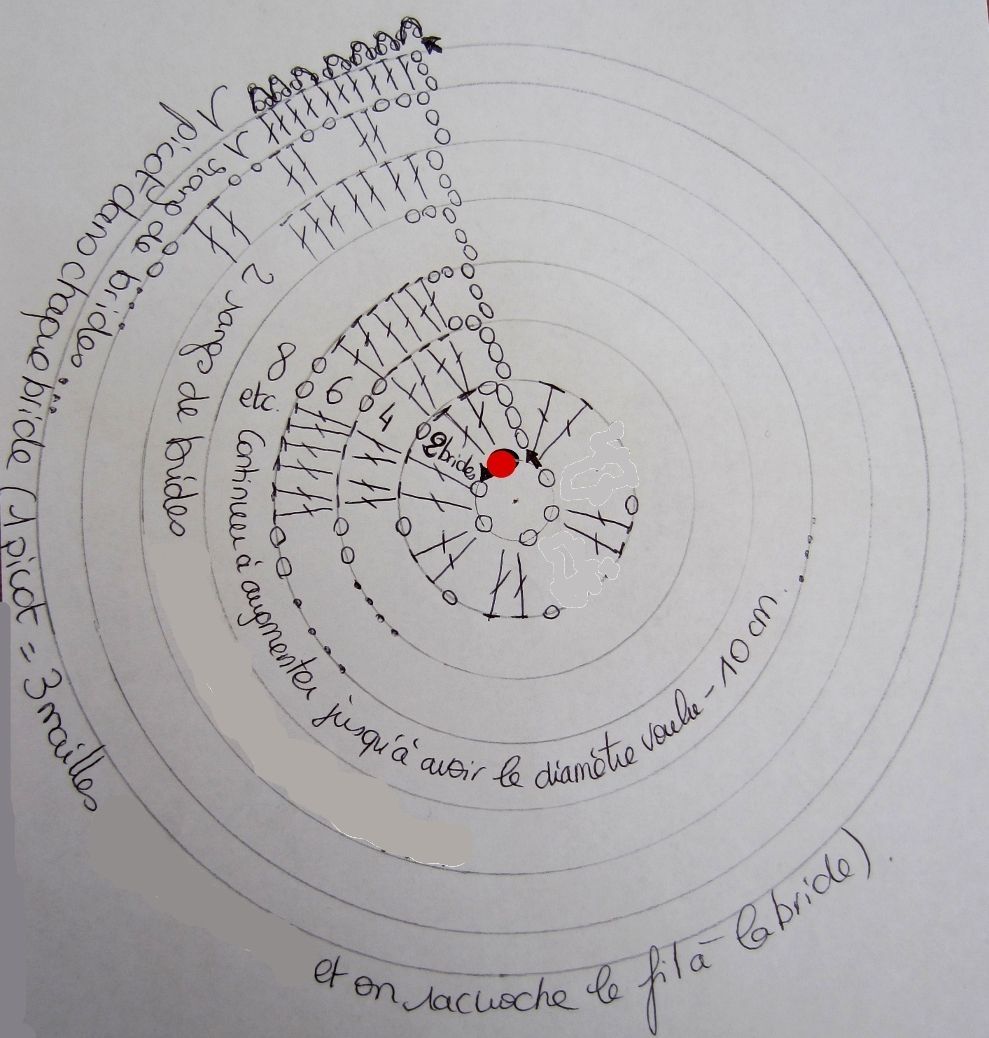 2 brides
4
6
8
etc. Continuer à augmenter jusqu'à avoir le diamètre voulu - 10 cm.
2 rangs de brides
1 rang de brides
1 picot dans chaque bride (1 picot = 3 mailles
et on raccroche le fil à la bride).